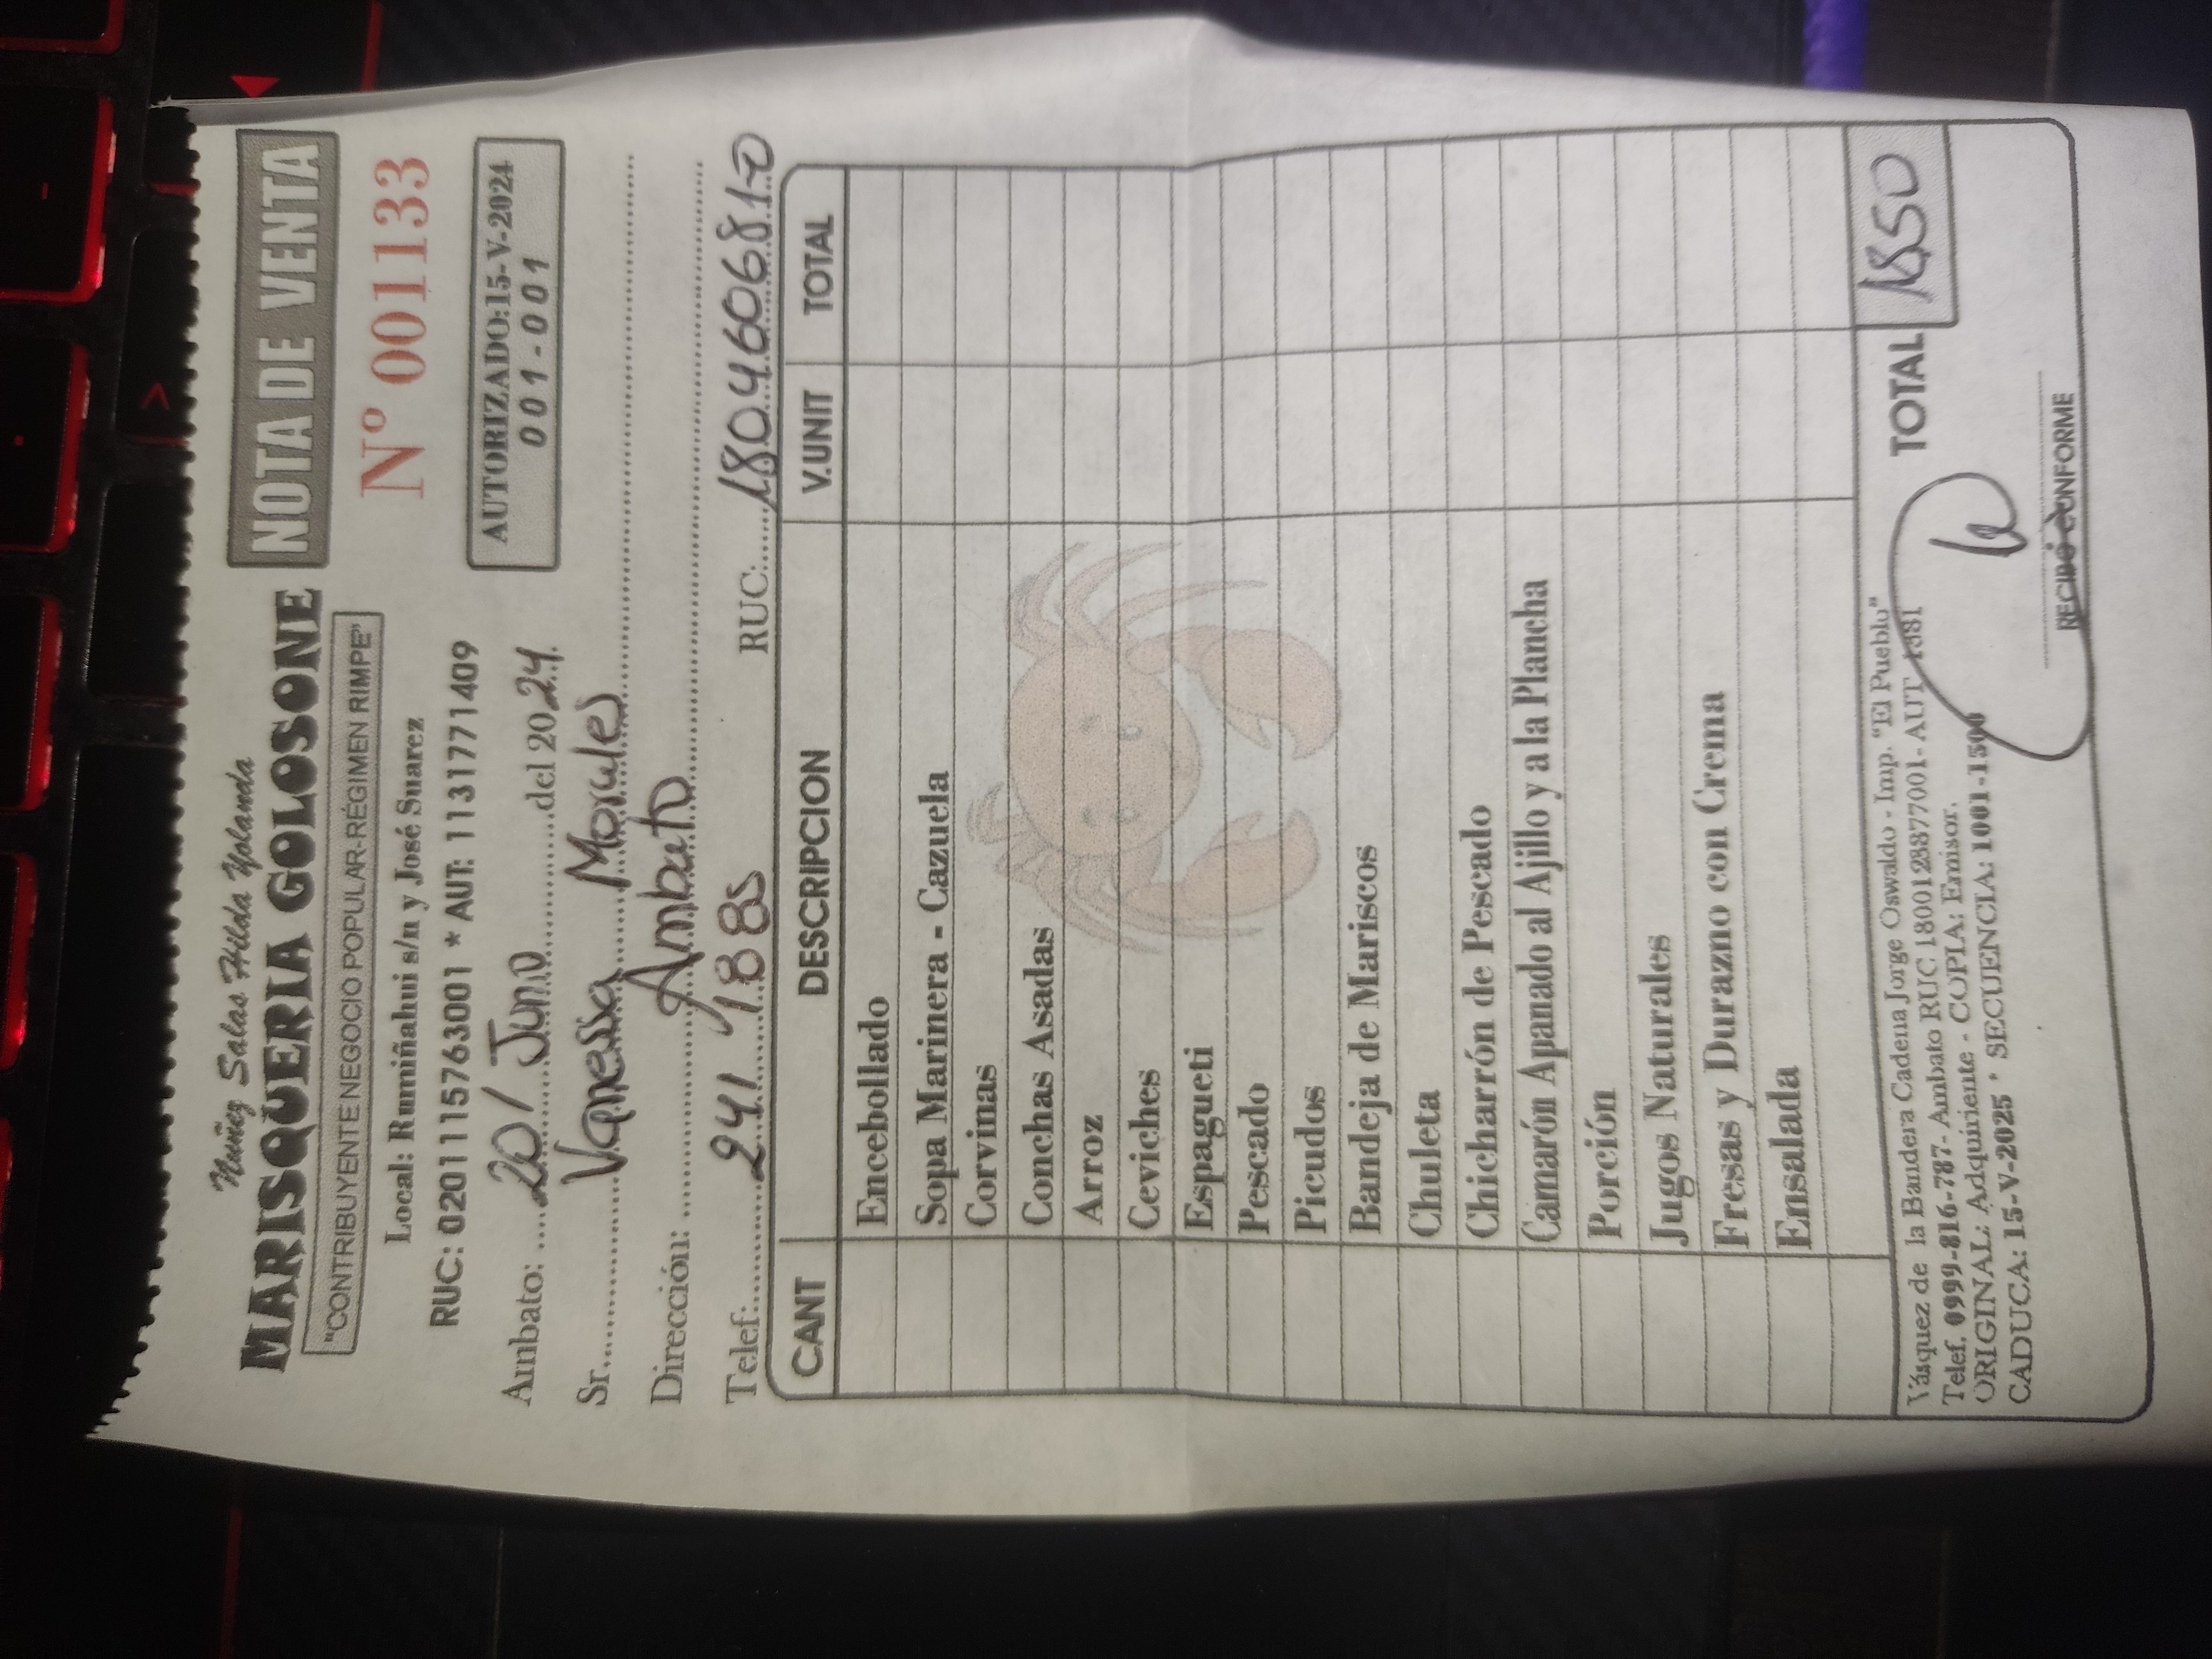 Nuñez Salas Hilda Yolanda
MARISQUERIA GOLOSONE
"CONTRIBUYENTE NEGOCIO POPULAR-RÉGIMEN RIMPE"
Local: Rumiñahui s/n y José Suarez
RUC: 0201115763001 * AUT: 1131771409
NOTA DE VENTA
Nº 001133
AUTORIZADO:15-V-2024
001-001
Ambato: 20 / Junio del 2024
Sr. Vanessa Morales
Dirección: Ambato
Telef: 241 1885 RUC: 180460681-0
CANT DESCRIPCION V.UNIT TOTAL
Encebollado
Sopa Marinera - Cazuela
Corvinas
Conchas Asadas
Arroz
Ceviches
Espagueti
Pescado
Picudos
Bandeja de Mariscos
Chuleta
Chicharrón de Pescado
Camarón Apanado al Ajillo y a la Plancha
Porción
Jugos Naturales
Fresas y Durazno con Crema
Ensalada
TOTAL 18,50
Vásquez de la Bandera Cadena Jorge Oswaldo - Imp. "El Pueblo"
Telef. 0999-816-787- Ambato RUC 1800128877001- AUT 1381
ORIGINAL: Adquiriente - COPIA: Emisor.
CADUCA: 15-V-2025 * SECUENCIA: 1001-1500
RECIBÓ CONFORME